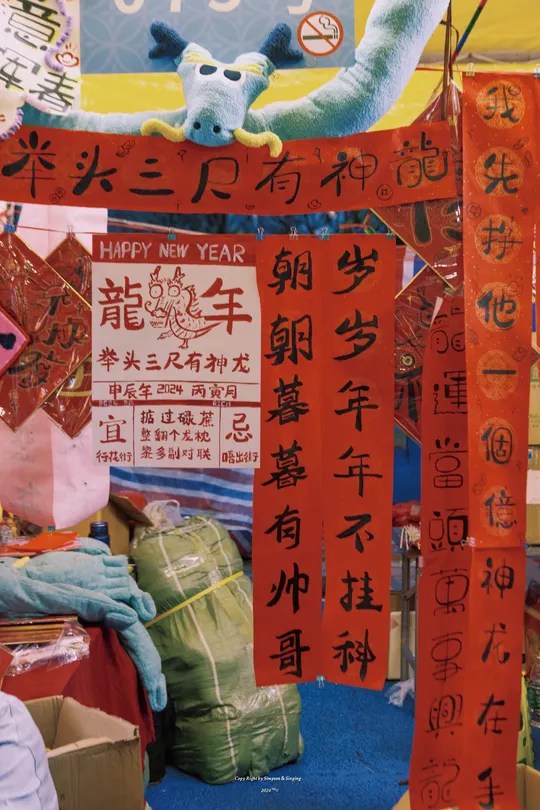 举头三尺有神龍
HAPPY NEW YEAR
龍年
举头三尺有神龙
甲辰年 2024 丙寅月
宜
行花街
掂过碌蔗
整翻个龙枕
黎多副对联
忌
唔出街
岁岁年年不挂科
朝朝暮暮有帅哥
我先挣他一個億
神龙在手
龍運當頭萬事興龍
Copy Right by Simpson & Singing
2024